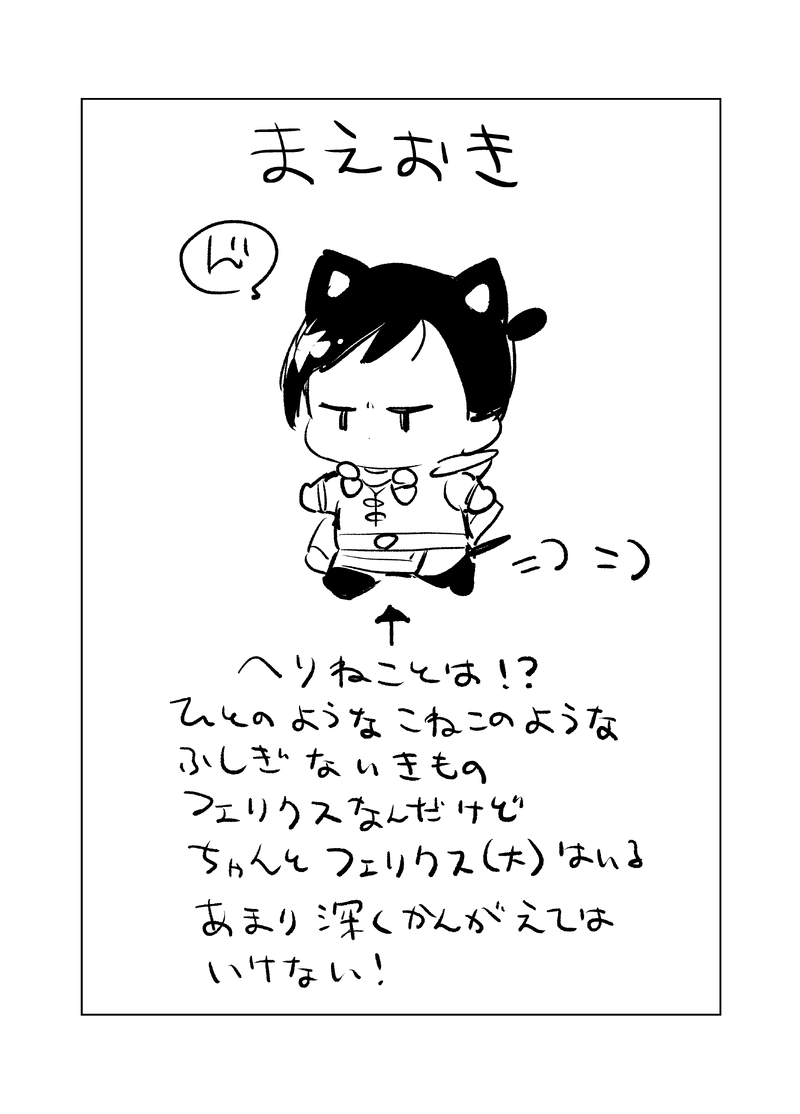 まえおき
へりねことは!?
ひとのような こねこのような
ふしぎ ないきもの
フェリクスなんだけど
ちゃんと フェリクス(大)はいる
あまり 深くかんがえては
いけない!